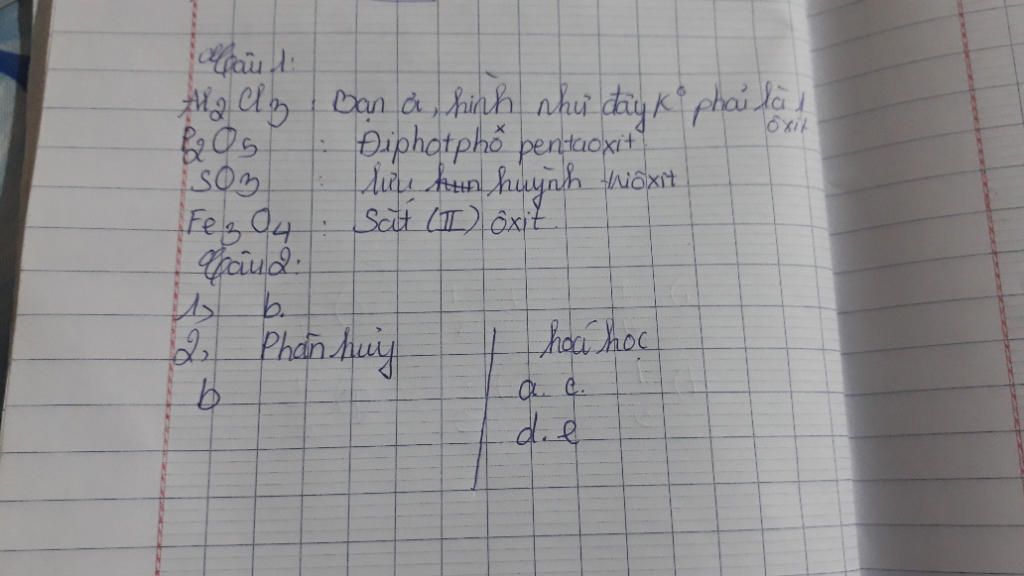 Câu 1:
Al2Cl3 : Bạn ơi, hình như đây k° phải là 1
ôxit
P2O5 : Điphotphổ pentaoxit
SO3 : lưu huỳnh triôxit
Fe3O4 : Sắt (II) ôxit
Câu 2:
1, b.
2, Phân huỷ hoá học
b a. c.
d. e